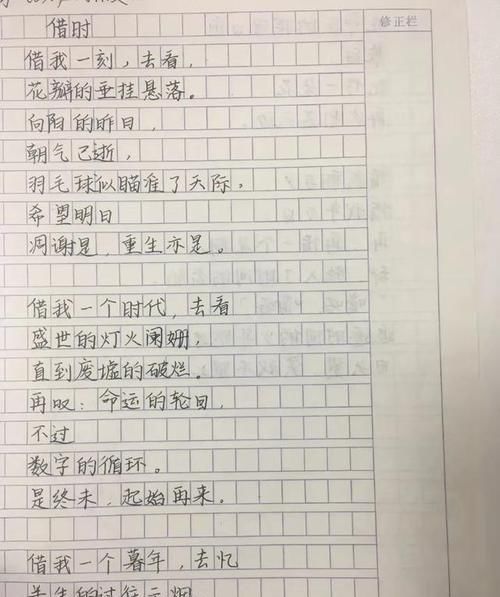 修正栏
借时
借我一刻，去看，
花瓣的垂挂悬落。
向阳的昨日，
朝气已逝，
羽毛球似瞄准了天际，
希望明日
凋谢是，重生亦是。
借我一个时代，去看
盛世的灯火阑姗，
直到废墟的破烂。
再叹：命运的轮回，
不过
数字的循环。
是终末，起始再来。
借我一个暮年，去忆
的过往云烟